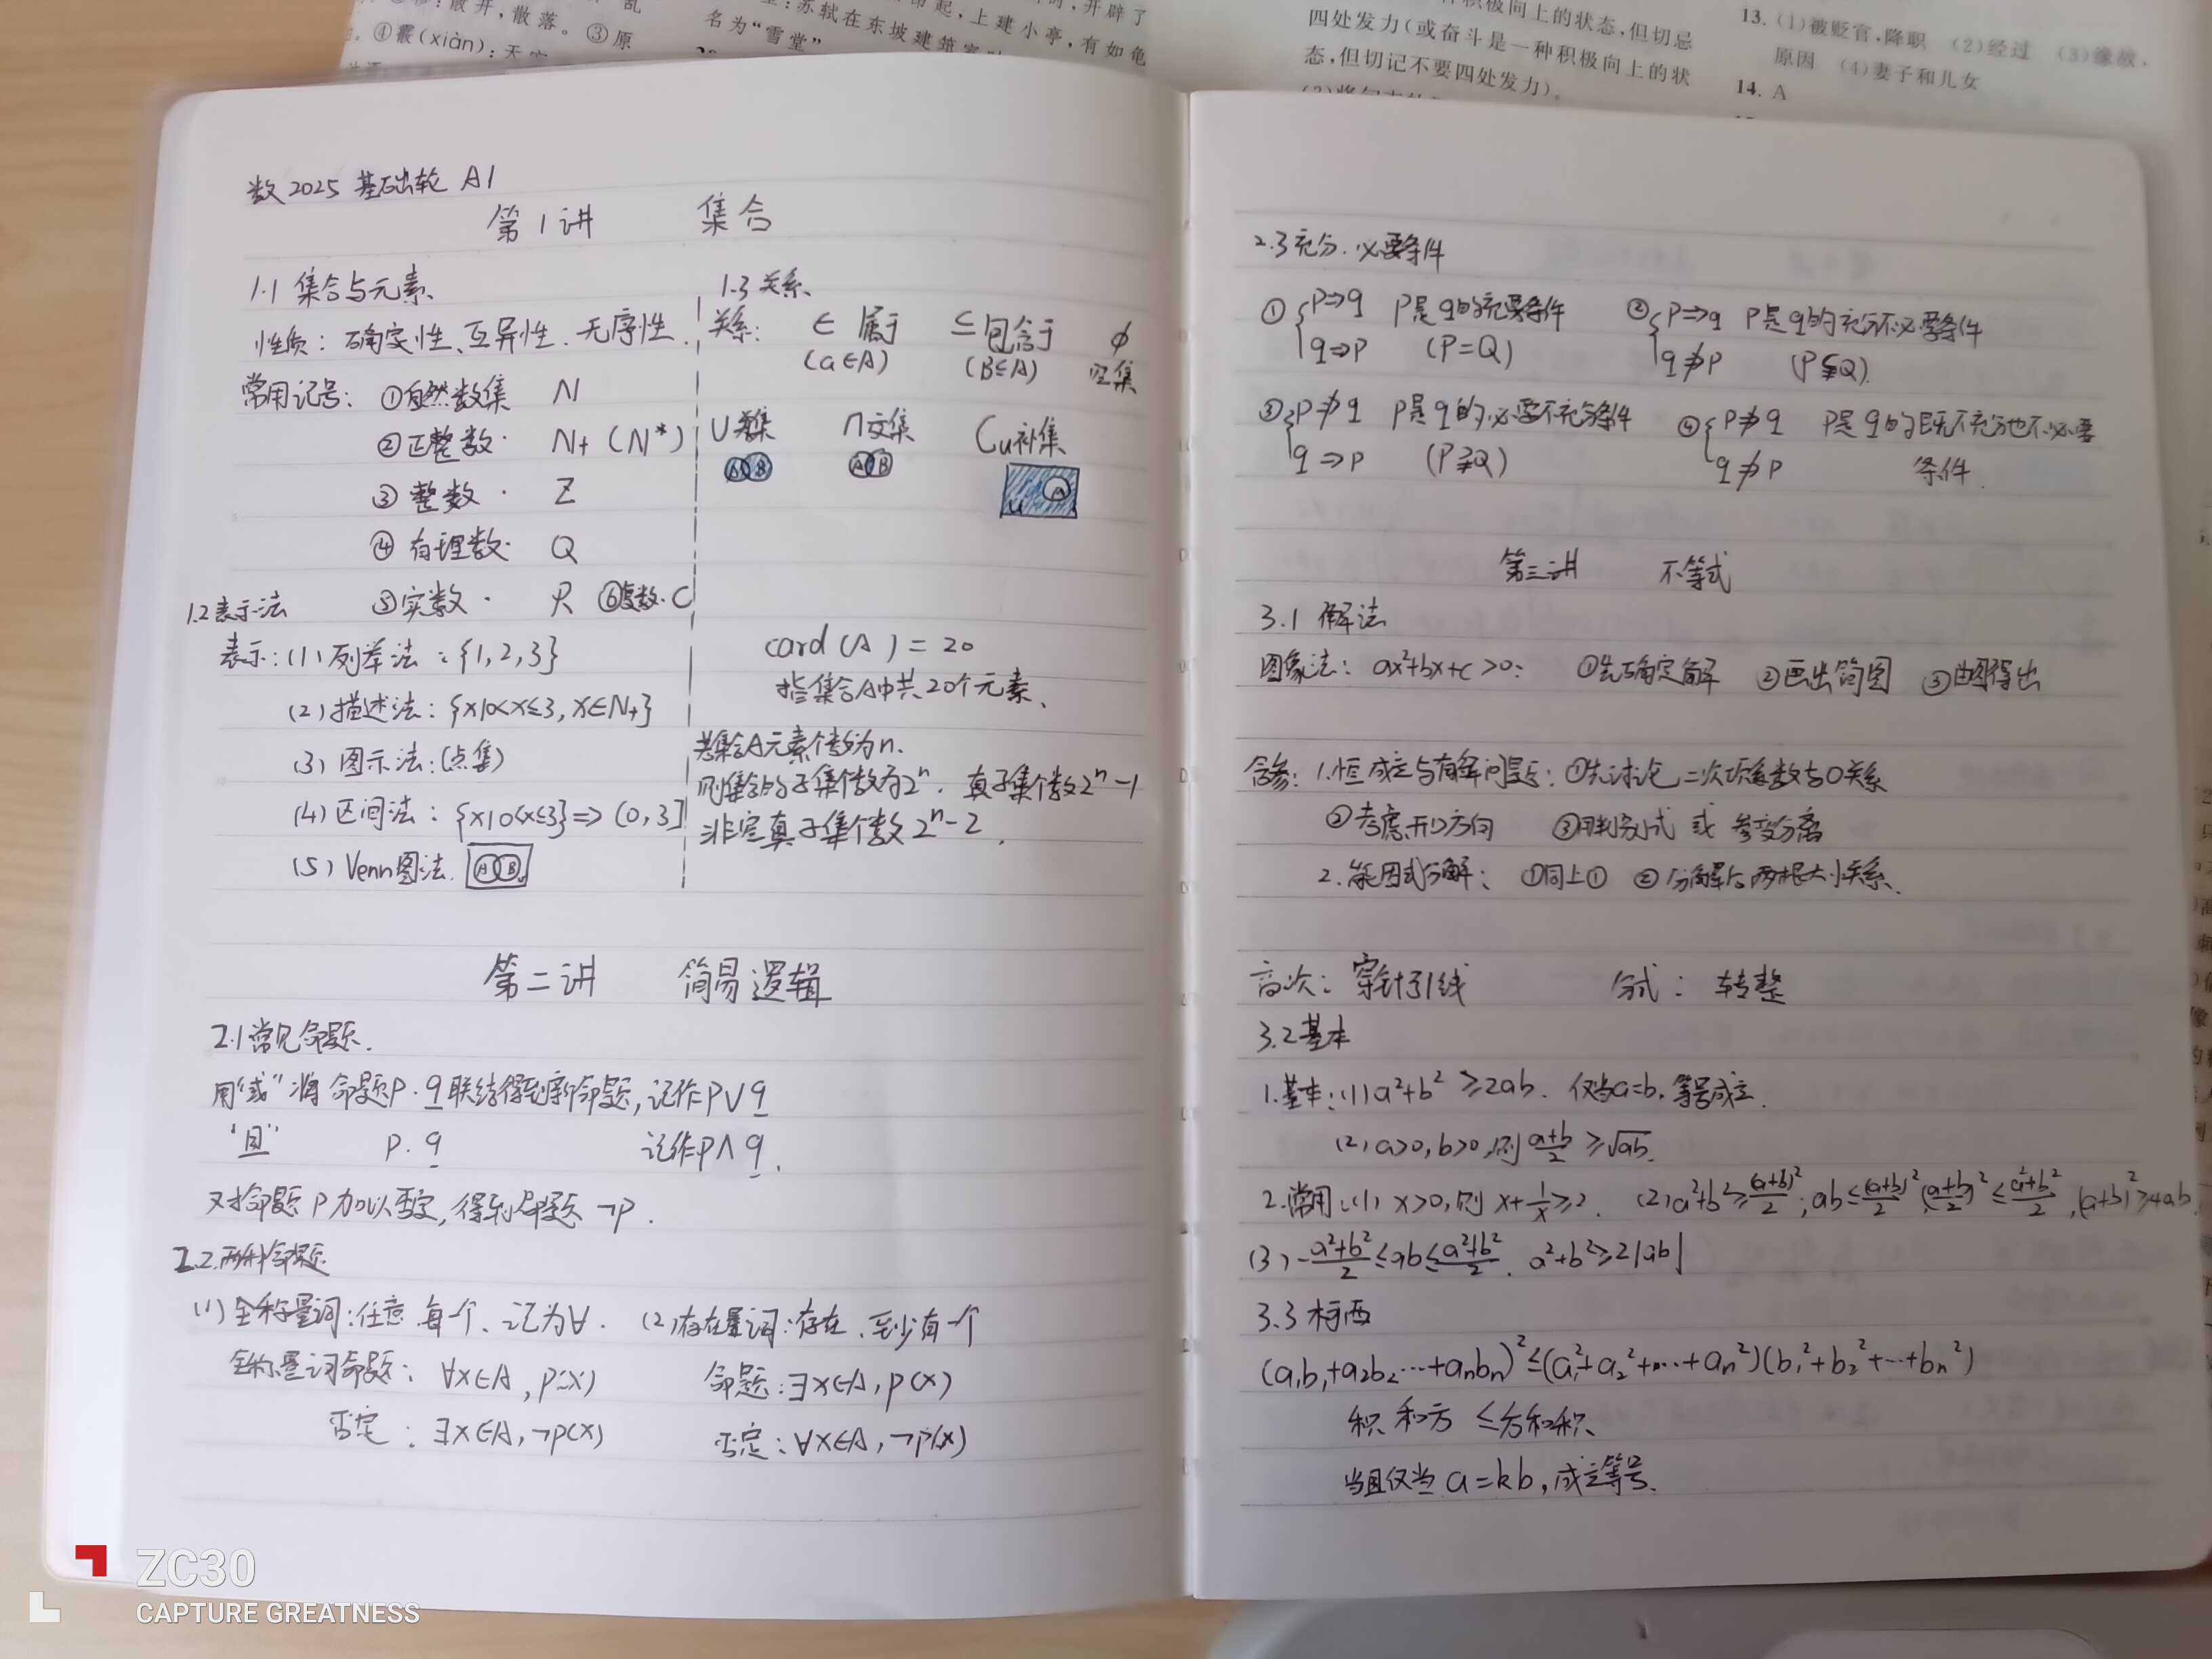 乱
散开，散落。③原
④霰(xiàn)：
：苏轼在东坡建筑
起，上建小亭，有如龟
时，开辟了
名为“雪堂”
积极向上的状态，但切忌
四处发力(或奋斗是一种积极向上的状
态，但切记不要四处发力)。
13. (1)被贬官，降职 (2)经过 (3)缘故，
原因 (4)妻子和儿女
14. A
数2025 基础轮 A1
第1讲 集合
1.1 集合与元素
性质：确定性、互异性、无序性.
常用记号：①自然数集 N
②正整数· N+ (N*)
③整数· Z
④有理数· Q
⑤实数· R ⑥复数·C
1.2表示法
表示:(1)列举法：{1,2,3}
(2)描述法：{x|0<x≤3, x∈N+}
(3)图示法:(点集)
(4)区间法：{x|0<x≤3}⇒(0,3]
(5) Venn图法. A B
1.3关系
关系: ∈ 属于 ⊆包含于 ϕ
(a∈A) (B⊆A) 空集
∪并集 ∩交集 Cu补集
A B A B A u
card(A)=20
指集合A中共20个元素、
若集合A元素个数为n.
则集合的子集个数为2ⁿ. 真子集个数2ⁿ-1
非空真子集个数2ⁿ-2.
第二讲 简易逻辑
2.1常见命题.
用“或”将命题p.q联结得到新命题,记作p∨q
“且” p.q 记作p∧q.
对命题p加以否定,得到命题¬p.
2.2.两种命题
(1)全称量词:任意.每个、记为∀. (2)存在量词:存在、至少有一个
全称量词命题: ∀x∈A, p(x) 命题:∃x∈A, p(x)
否定: ∃x∈A,¬p(x) 否定:∀x∈A,¬p(x)
2.3充分.必要条件
① p⇒q p是q的充要条件 ② p⇒q p是q的充分不必要条件
q⇒p (P=Q) q⇏p (P⫋Q).
③ p⇏q p是q的必要不充分条件 ④ p⇏q p是q的既不充分也不必要
q⇒p (P⫌Q) q⇏p 条件.
第三讲 不等式
3.1 解法
图象法: ax²+bx+c>0: ①先确定解 ②画出简图 ③由图得出
含参: 1.恒成立与有解问题: ①先讨论二次项系数与0关系
②考虑开口方向 ③用判别式 或 参变分离
2.能因式分解: ①同上① ②分解后两根大小关系、
高次: 穿针引线 分式: 转整
3.2基本
1.基本:(1)a²+b²≥2ab. 仅当a=b,等号成立.
(2)a>0,b>0,则 (a+b)/2 ≥√ab.
2.常用:(1) x>0,则 x+1/x≥2. (2)a²+b²≥(a+b)²/2; ab≤(a+b)²/2, (a+b/2)²≤(a²+b²)/2,(a+b)²≥4ab.
(3) -(a²+b²)/2≤ab≤(a²+b²)/2. a²+b²≥2|ab|
3.3 柯西
(a₁b₁+a₂b₂…+aₙbₙ)²≤(a₁²+a₂²+…+aₙ²)(b₁²+b₂²+…+bₙ²)
积和方≤方和积
当且仅当a=kb,成立等号.
ZC30
CAPTURE GREATNESS